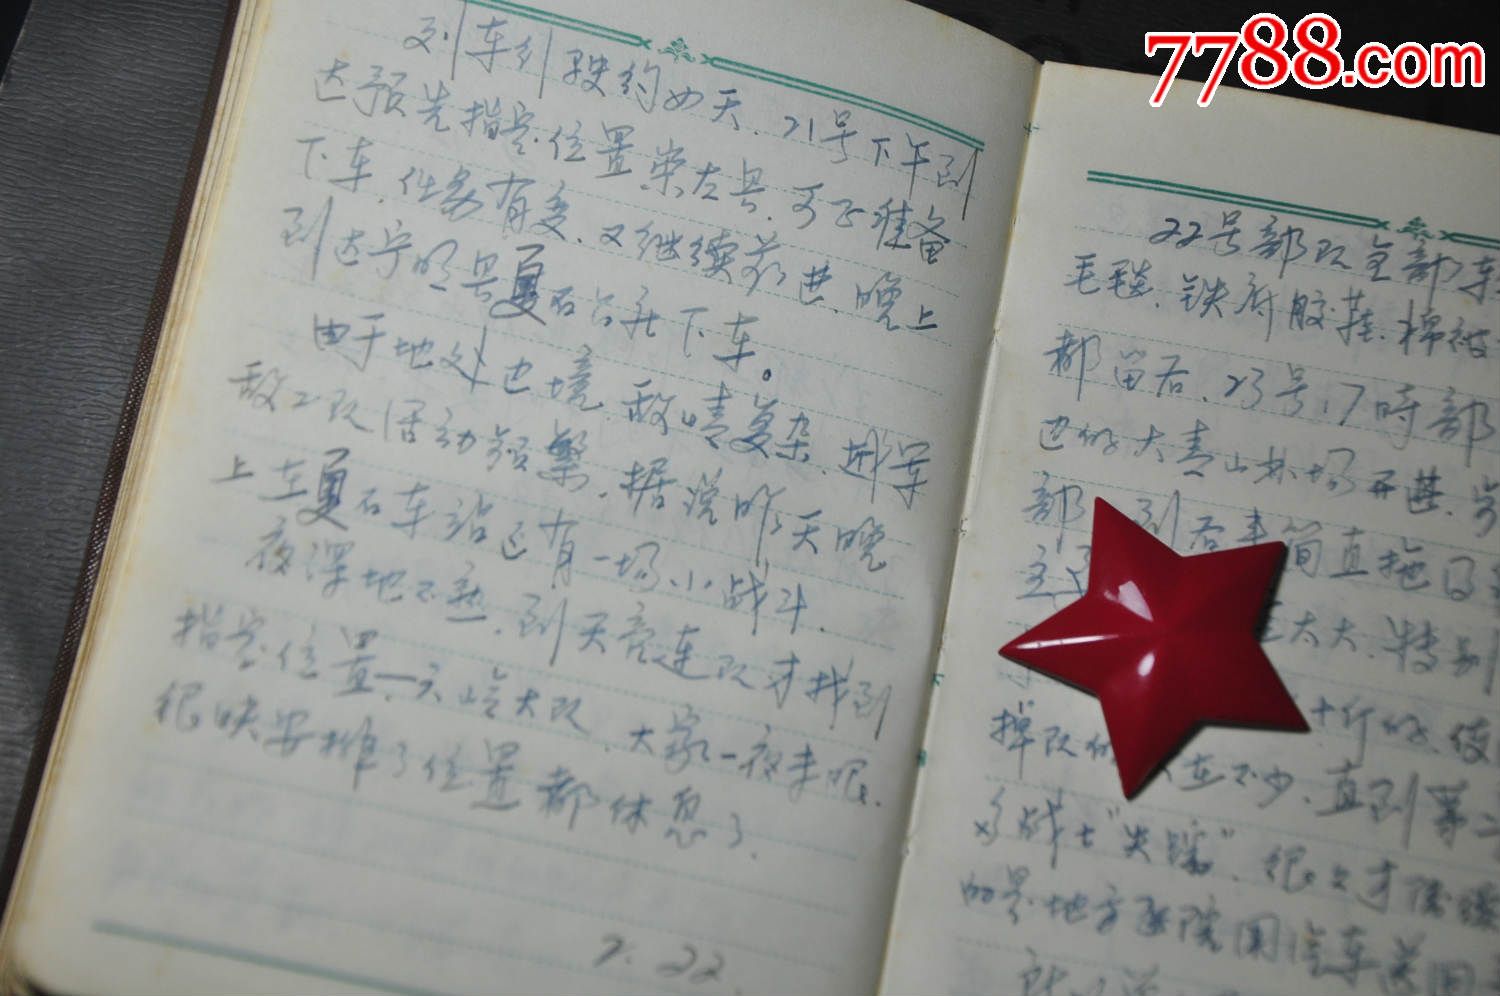 7788.com
列车行驶约四天.21号下午到
达预先指定位置崇左县.可正准备
下车.任务有变.又继续前进.晚上
到达宁明县夏石公社下车。
由于地处边境.敌情复杂.
敌工队活动频繁.据说昨天晚
上在夏石车站还有一场小战斗.
夜深地不熟.到天亮连队才找到
指定位置—大队.大家一夜未眠.
很快安排了位置都休息了.
2.22
22号部队全部轻
毛毯.铁底胶鞋.棉被
都留后.23号17时部
边的大青山林场开进.
部 到后来简直拖
太大.特别
掉队的 不少.直到第二
战士"失踪".很久才陆续
地方医院用汽车送回